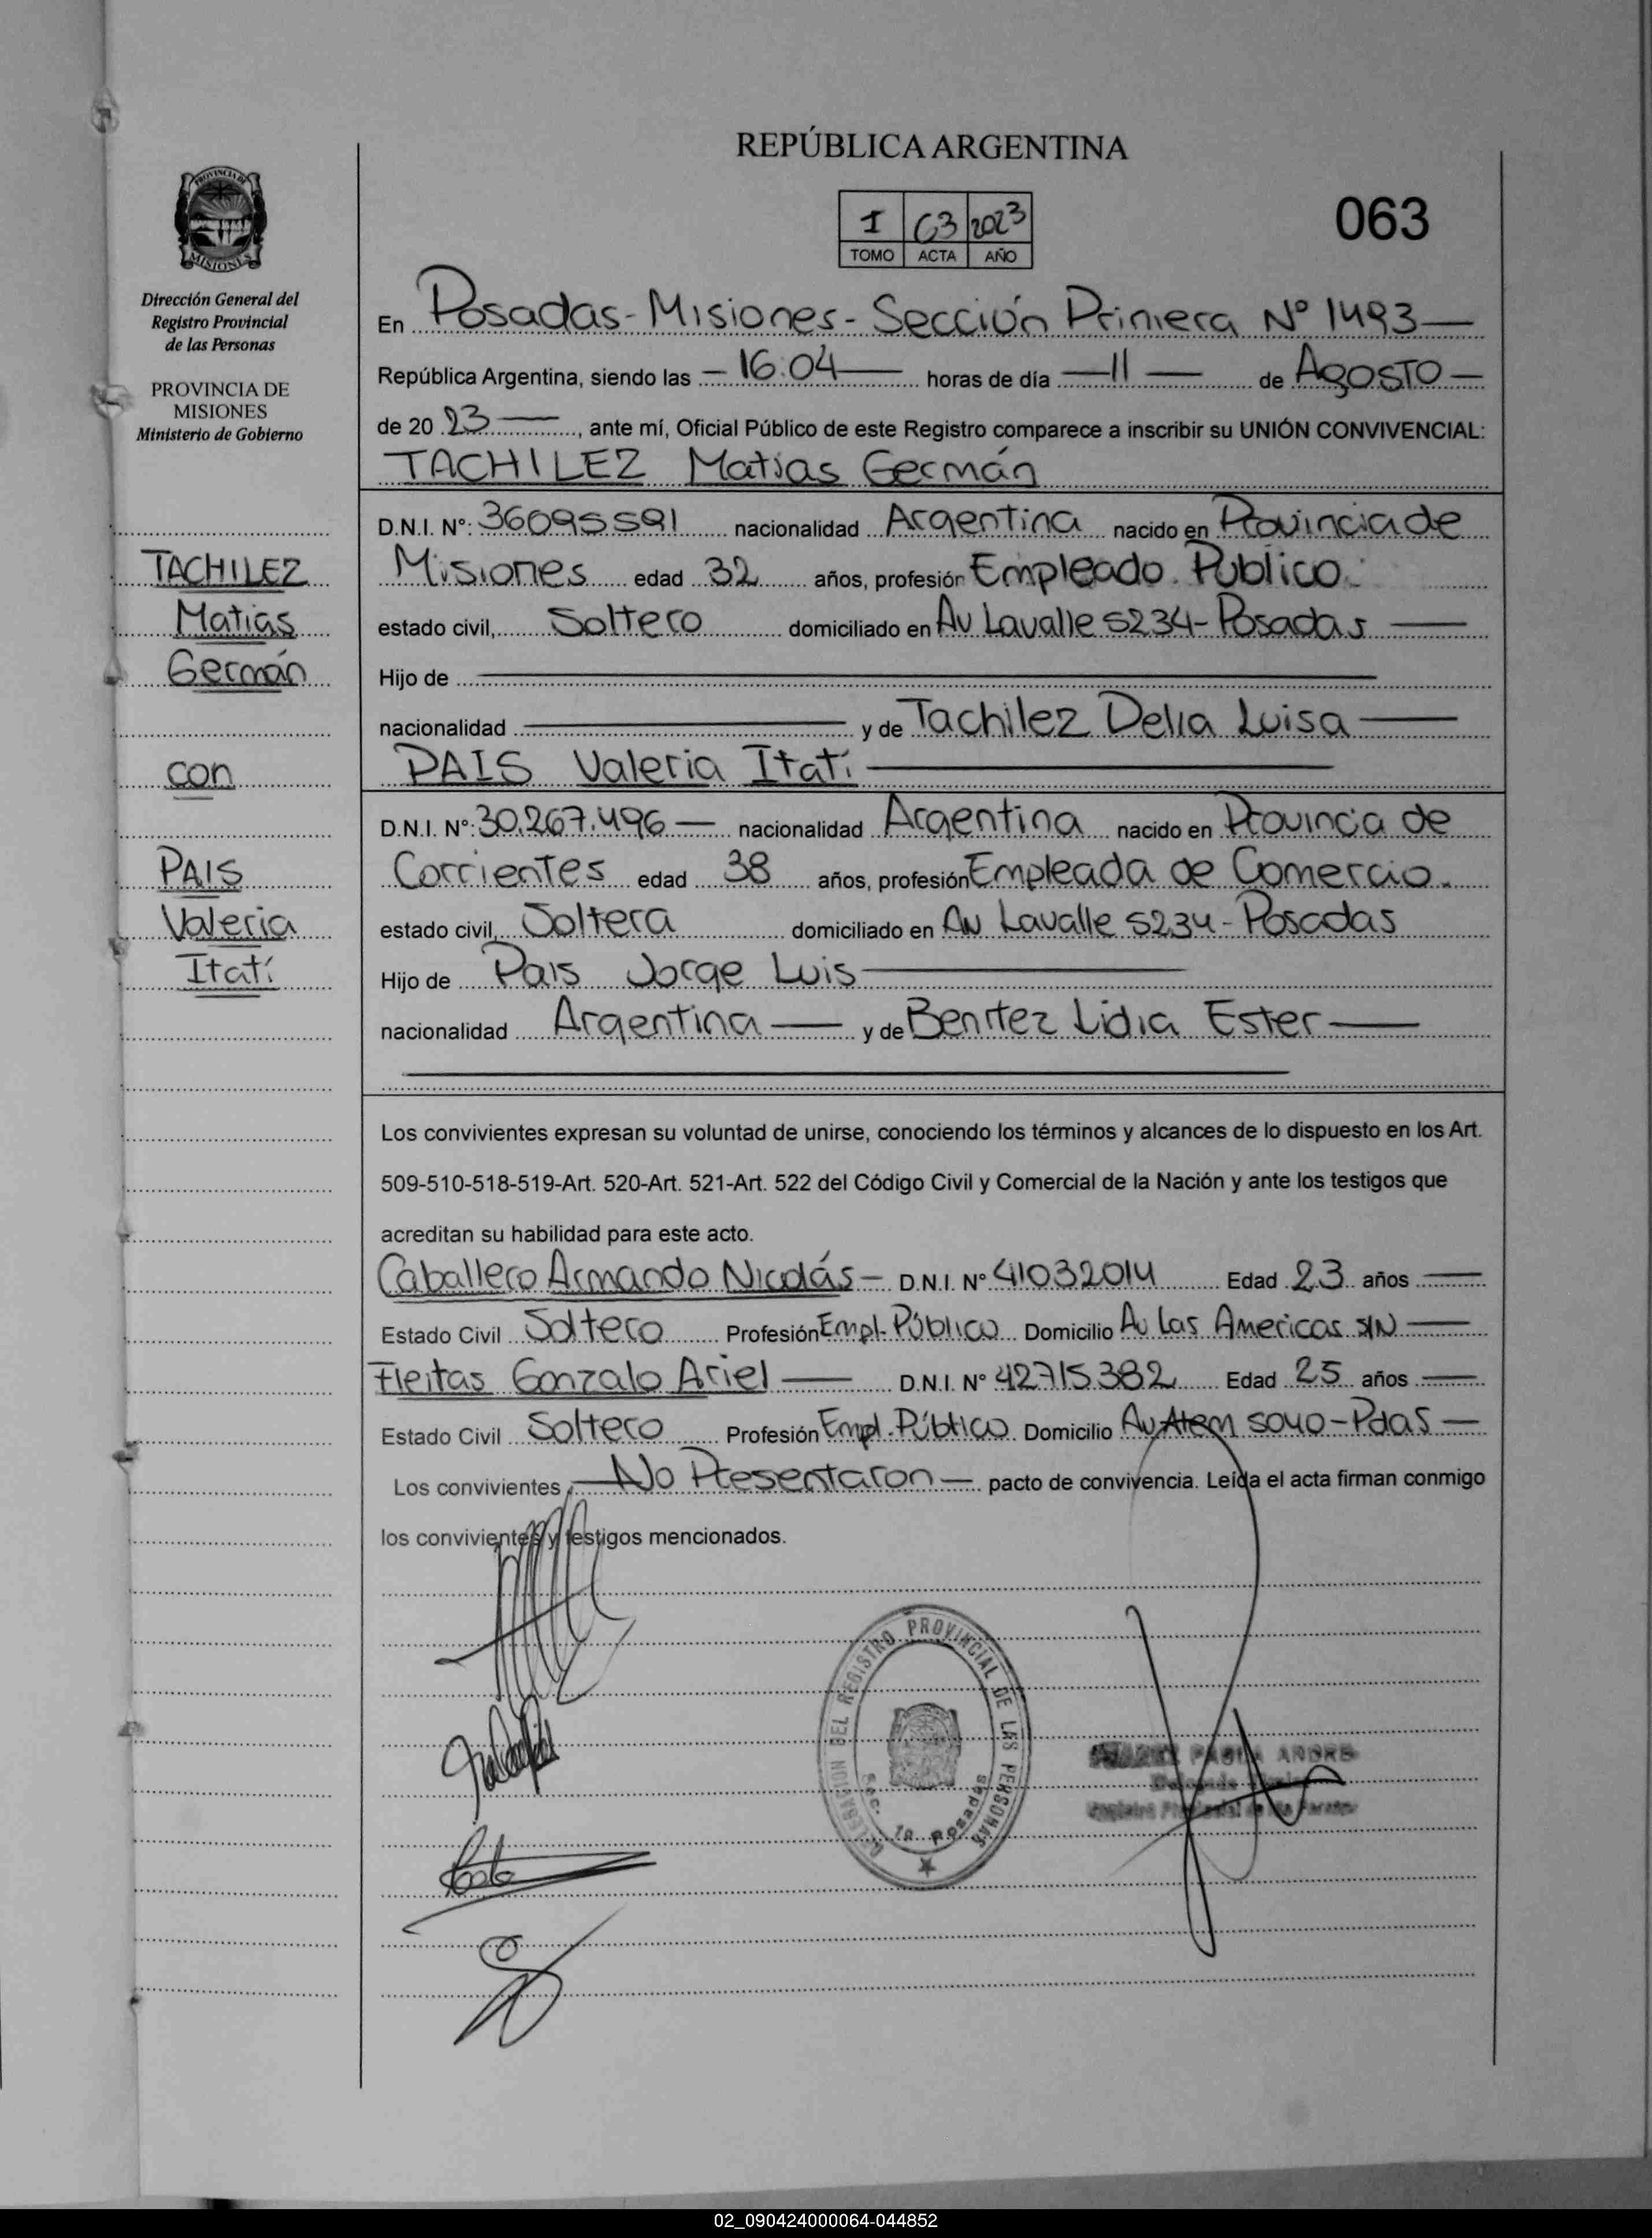 REPÚBLICA ARGENTINA
I 63 2023
TOMO ACTA AÑO
063
PROVINCIA DE
MISIONES
Dirección General del
Registro Provincial
de las Personas
PROVINCIA DE
MISIONES
Ministerio de Gobierno
TACHILEZ
Matias
Germán
con
PAIS
Valeria
Itatí
En Posadas - Misiones - Sección Primera Nº 1493
República Argentina, siendo las 16:04 horas de día 11 de Agosto
de 20 23, ante mí, Oficial Público de este Registro comparece a inscribir su UNIÓN CONVIVENCIAL:
TACHILEZ Matias Germán
D.N.I. Nº: 36095591 nacionalidad Argentina nacido en Provincia de
Misiones edad 32 años, profesión Empleado Publico.
estado civil, Soltero domiciliado en Av Lavalle 5234 - Posadas
Hijo de
nacionalidad y de Tachilez Delia Luisa
PAIS Valeria Itatí
D.N.I. Nº: 30.267.496 nacionalidad Argentina nacido en Provincia de
Corrientes edad 38 años, profesión Empleada de Comercio.
estado civil, Soltera domiciliado en Av Lavalle 5234 - Posadas
Hijo de Pais Jorge Luis
nacionalidad Argentina y de Benitez Lidia Ester
Los convivientes expresan su voluntad de unirse, conociendo los términos y alcances de lo dispuesto en los Art.
509-510-518-519-Art. 520-Art. 521-Art. 522 del Código Civil y Comercial de la Nación y ante los testigos que
acreditan su habilidad para este acto.
Caballero Armando Nicolás D.N.I. Nº 41032014 Edad 23 años
Estado Civil Soltero Profesión Empl. Público Domicilio Av Las Americas S/N
Fleitas Gonzalo Ariel D.N.I. Nº 42715382 Edad 25 años
Estado Civil Soltero Profesión Empl. Público Domicilio Av Alem 5040 - Pdas
Los convivientes, No Presentaron pacto de convivencia. Leída el acta firman conmigo
los convivientes y testigos mencionados.
DELEGACION DEL REGISTRO PROVINCIAL DE LAS PERSONAS
Sec. 1a Posadas
02_090424000064-044852